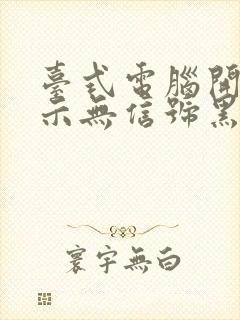 臺式電腦開
示無信號黑
寰宇無白